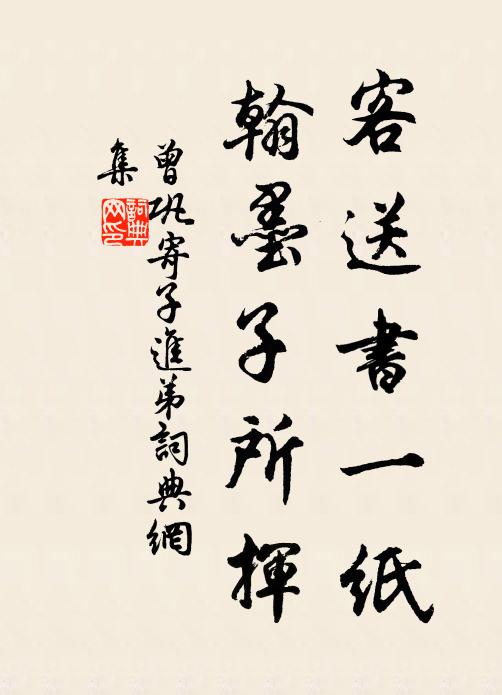 客送書一紙
翰墨子所揮
曾鞏寄子進弟詞典網
集
詞典
网印